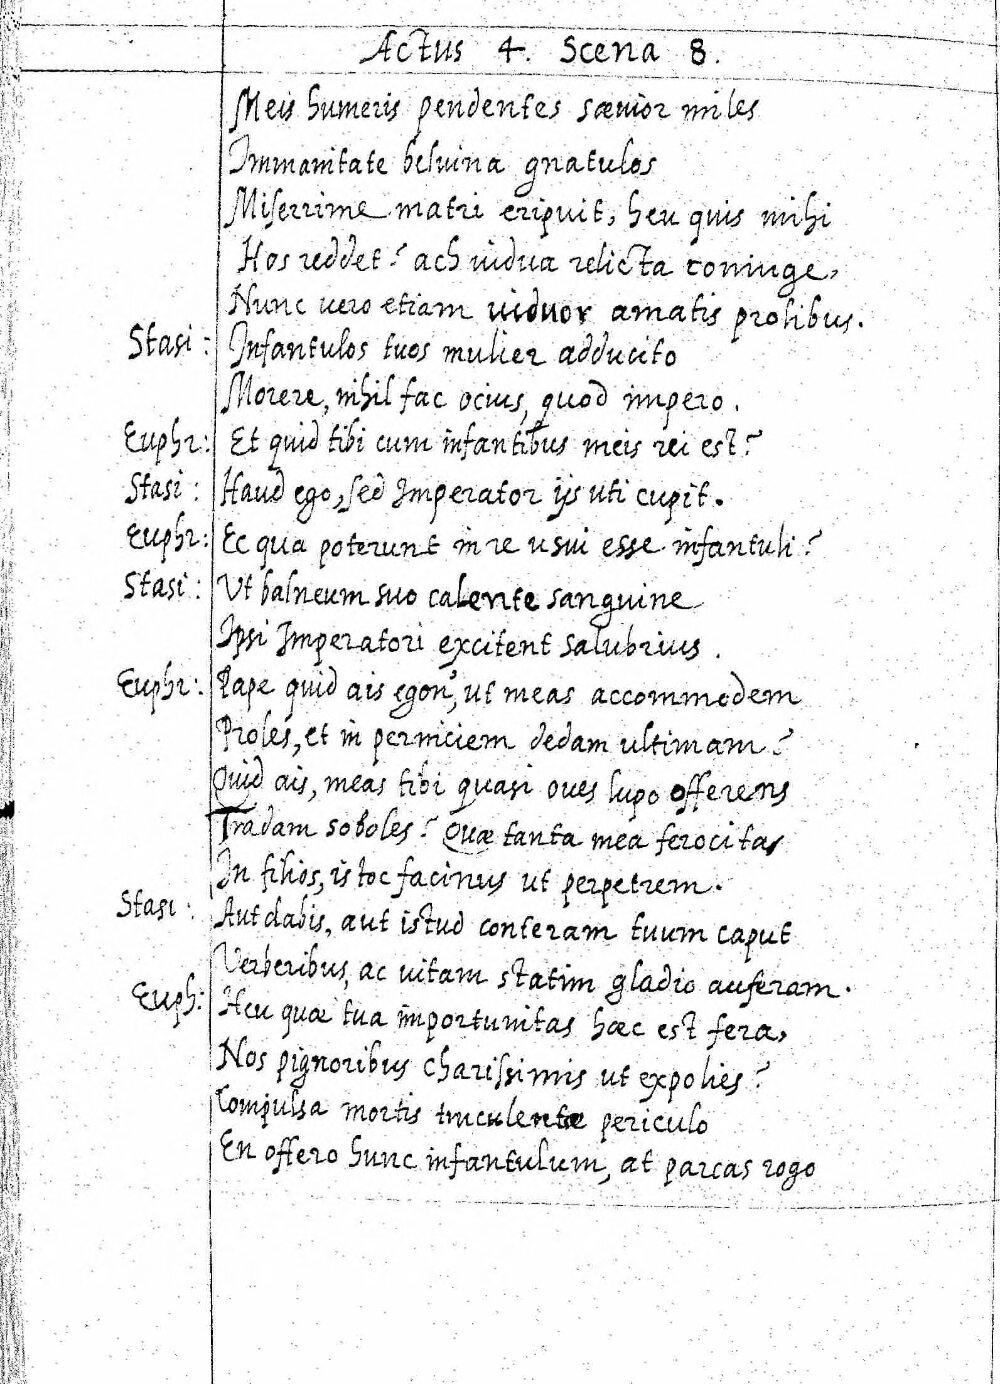 Actus 4. Scena 8.
Meis humeris pendentes sæuior miles
Immanitate beluina gnatulos
Miserrime matri eripuit, heu quis mihi
Hos reddet? ach uidua relicta coniuge,
Nunc uero etiam uiduor amatis prolibus.
Stasi: Infantulos tuos mulier adducito
Morere, nihil fac ocius, quod impero.
Euphr: Et quid tibi cum infantibus meis rei est?
Stasi: Haud ego, sed Imperator ijs uti cupit.
Euphr: Ec qua poterunt in re usui esse infantuli?
Stasi: Ut balneum suo calente sanguine
Ipsi Imperatori excitent salubrius.
Euphr: Pape quid ais egon', ut meas accommodem
Proles, et in perniciem dedam ultimam?
Quid ais, meas tibi quasi oues lupo offerens
Tradam soboles? Quæ tanta mea ferocitas
In filios, istoc facinus ut perpetrem.
Stasi: Aut dabis, aut istud conteram tuum caput
Verberibus, ac uitam statim gladio auferam.
Euph: Heu quæ tua importunitas hæc est fera,
Nos pignoribus charissimis ut expolies?
Compulsa mortis truculentæ periculo
En offero hunc infantulum, at parcas rogo